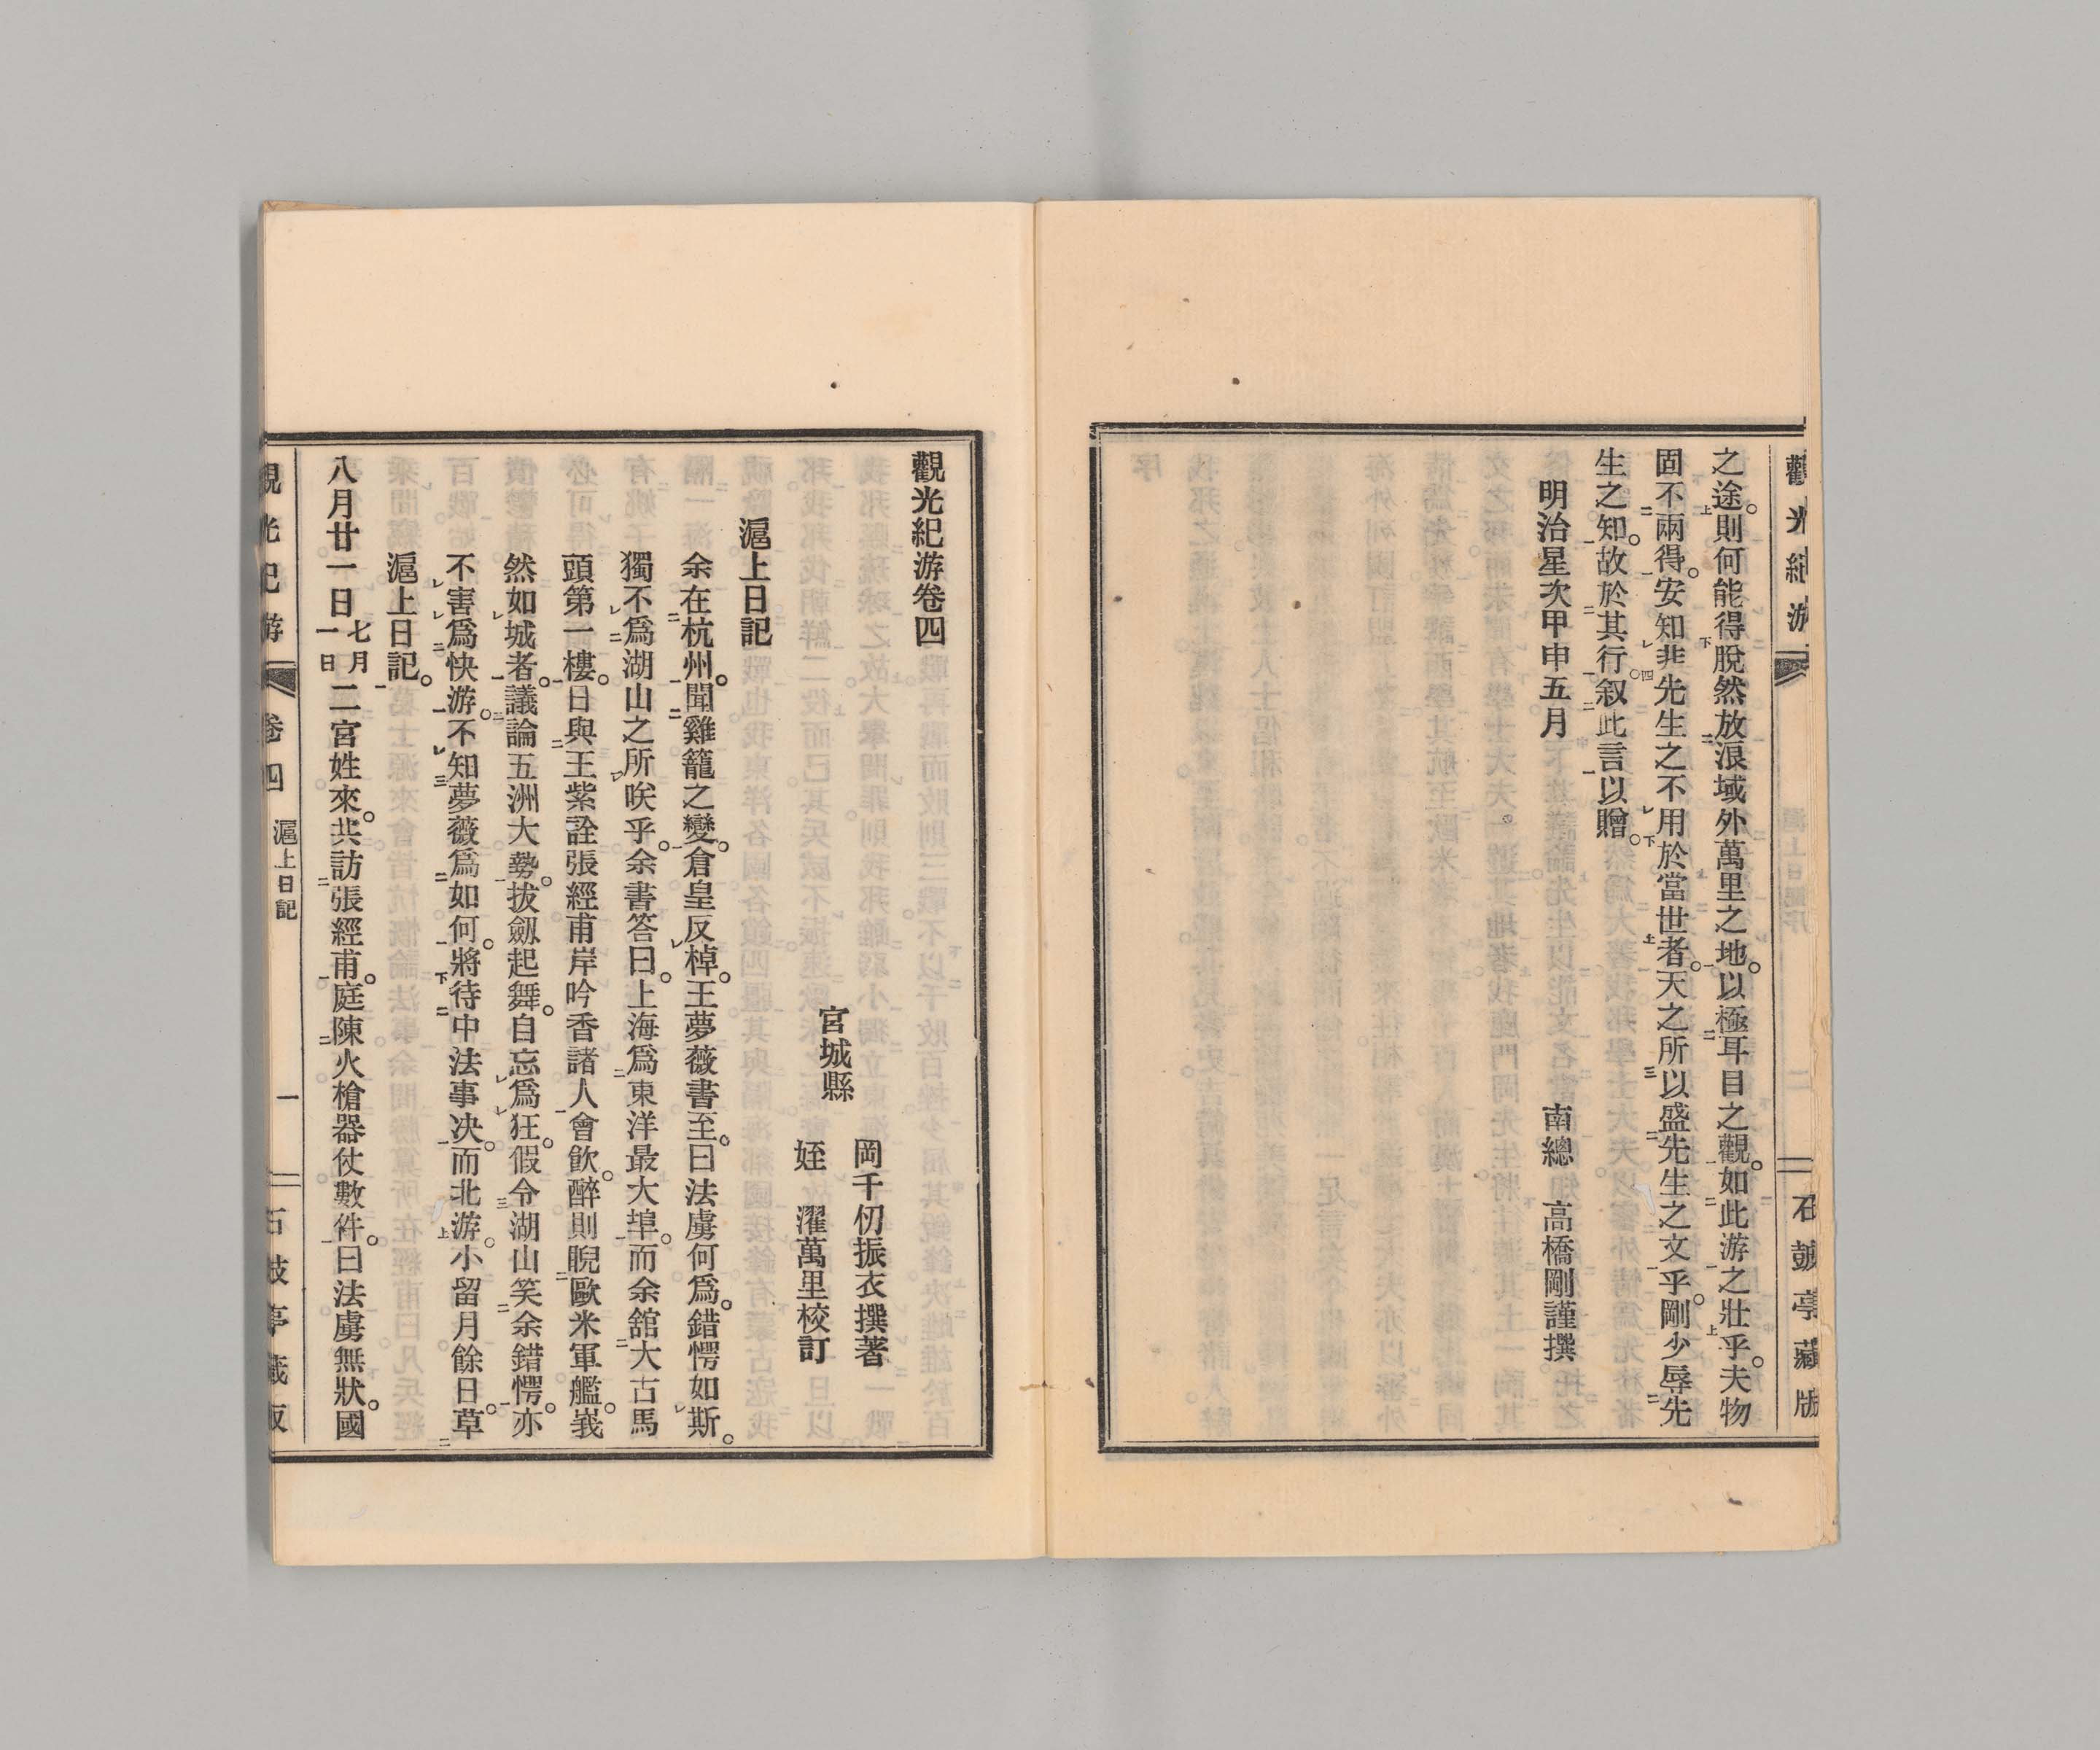 觀光紀游
石皷亭藏版
之途。則何能得脫然放浪域外萬里之地。以極耳目之觀。如此游之壯乎。夫物
固不兩得。安知非先生之不用於當世者。天之所以盛先生之文乎。剛少辱先
生之知。故於其行。叙此言以贈。
明治星次甲申五月
南總 高橋剛謹撰
觀光紀游卷四
宮城縣
岡千仞振衣撰著
姪 濯萬里校訂
滬上日記
余在杭州。聞雞籠之變。倉皇反棹。王夢薇書至。曰法虜何爲。錯愕如斯。
獨不爲湖山之所咲乎。余書答曰。上海爲東洋最大埠。而余舘大古馬
頭第一樓。日與王紫詮張經甫岸吟香諸人會飮。醉則睨歐米軍艦。巍
然如城者。議論五洲大勢。拔劔起舞。自忘爲狂。假令湖山笑余錯愕。亦
不害爲快游。不知夢薇爲如何。將待中法事决。而北游。小留月餘日。草
滬上日記。
八月廿一日七月一日二宮姓來。共訪張經甫。庭陳火槍器仗數件。曰法虜無狀。國
觀光紀游 卷四 滬上日記 一 石皷亭藏版